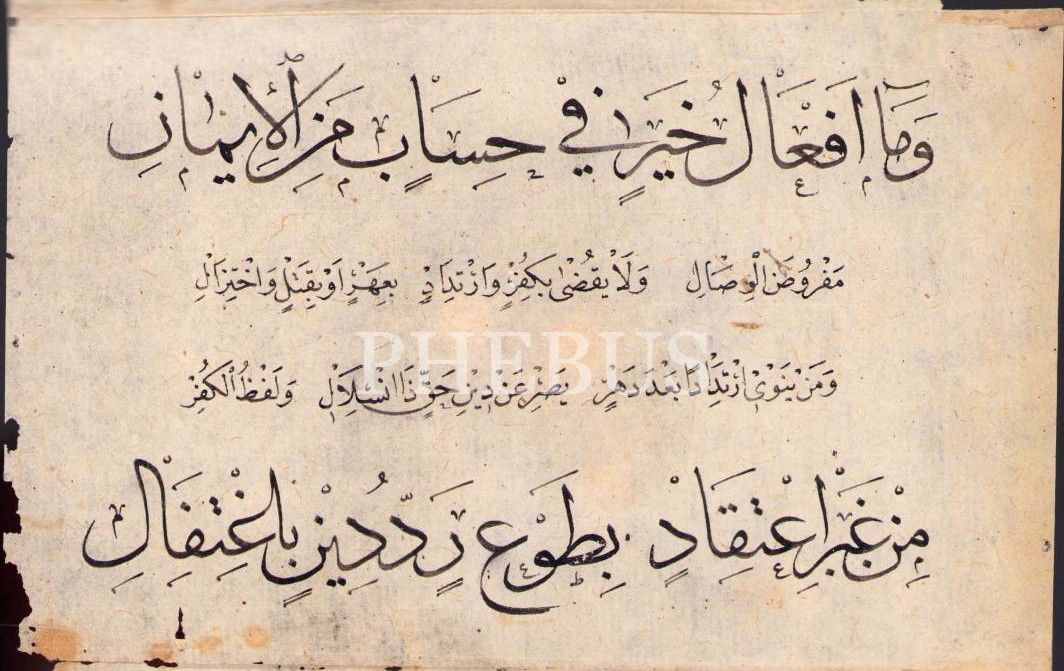 وَمَا اَفْعَالُ خَيْرٍ فِي حِسَابٍ مِنَ الْإِيمَانِ
مَفْرُوضَ الْوِصَالِ وَلَا يُقْضٰى بِكُفْرٍ وَارْتِدَادٍ بِعَهْرٍ اَوْ بِقَتْلٍ وَاخْتِزَالِ
PHEBUS
وَمَنْ يَنْوِي ارْتِدَادًا بَعْدَ دَهْرٍ يَصِرْ عَنْ دِينِ حَقٍّ ذَا انْسِلَالٍ وَلَفْظُ الْكُفْرِ
مِنْ غَيْرِ اعْتِقَادٍ بِطَوْعٍ رَدُّ دِيْنٍ بِاغْتِفَالِ